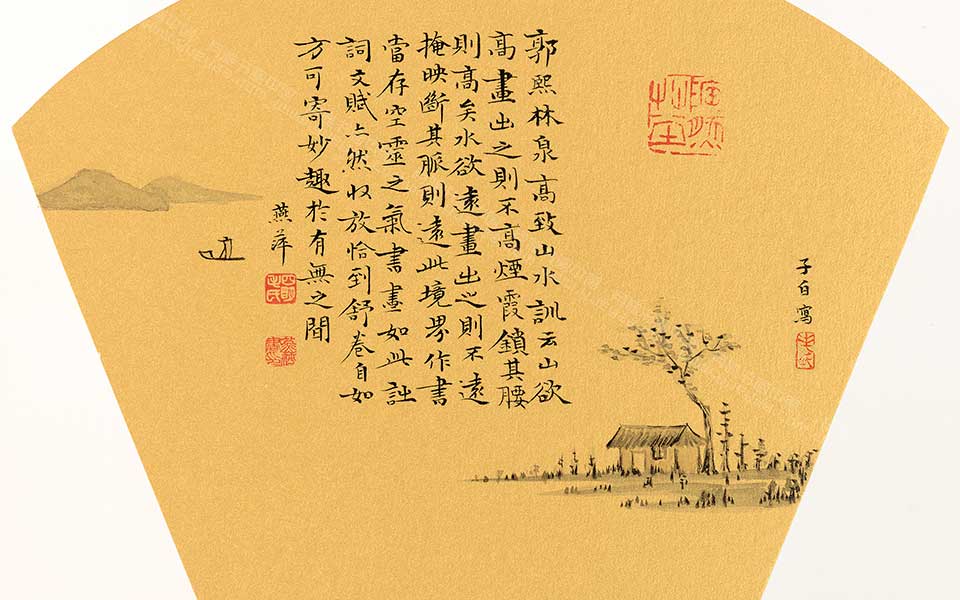 郭熙林泉高致山水訓云山欲
高畫出之則不高煙霞鎖其腰
則高矣水欲遠畫出之則不遠
掩映斷其脈則遠此境界作書
當存空靈之氣書畫如此詩
詞文賦亦然收放恰到舒卷自如
方可寄妙趣於有無之間
燕萍
子白寫